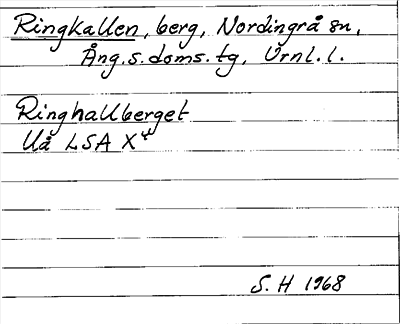 Ringkallen, berg, Nordingrå sn,
Ång. s. doms. tg, Örnl. l.
Ringhallberget
Uå LSA X
S. H 1968